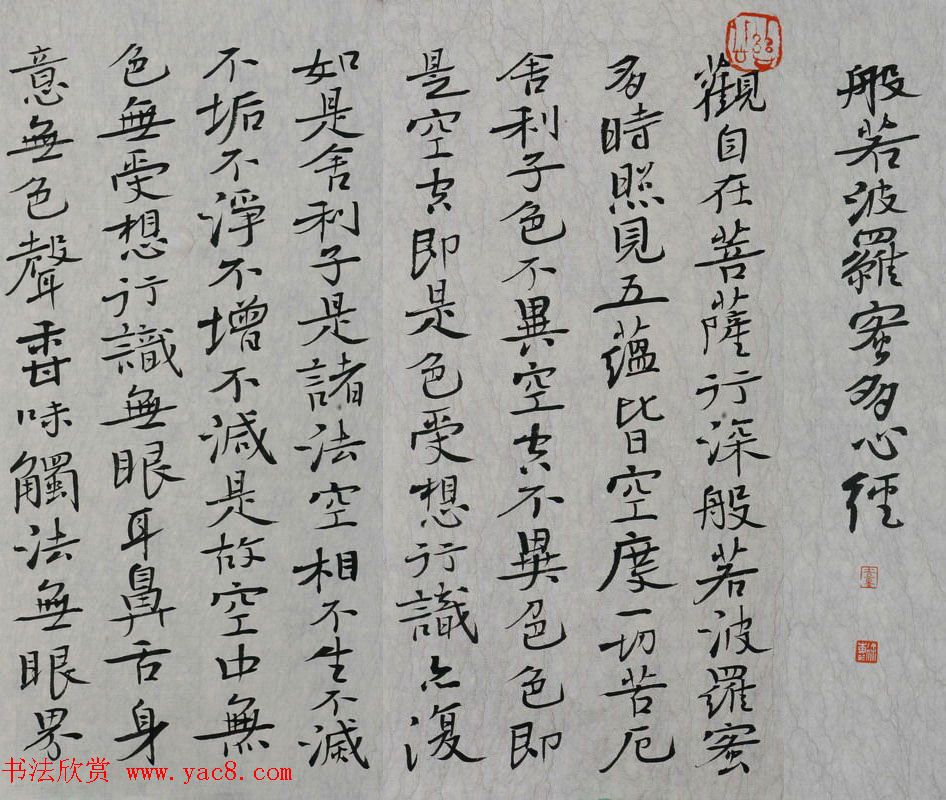 般若波羅蜜多心經
觀自在菩薩行深般若波羅蜜
多時照見五蘊皆空度一切苦厄
舍利子色不異空空不異色色即
是空空即是色受想行識亦復
如是舍利子是諸法空相不生不滅
不垢不淨不增不減是故空中無
色無受想行識無眼耳鼻舌身
意無色聲香味觸法無眼界
书法欣赏 www.yac8.com